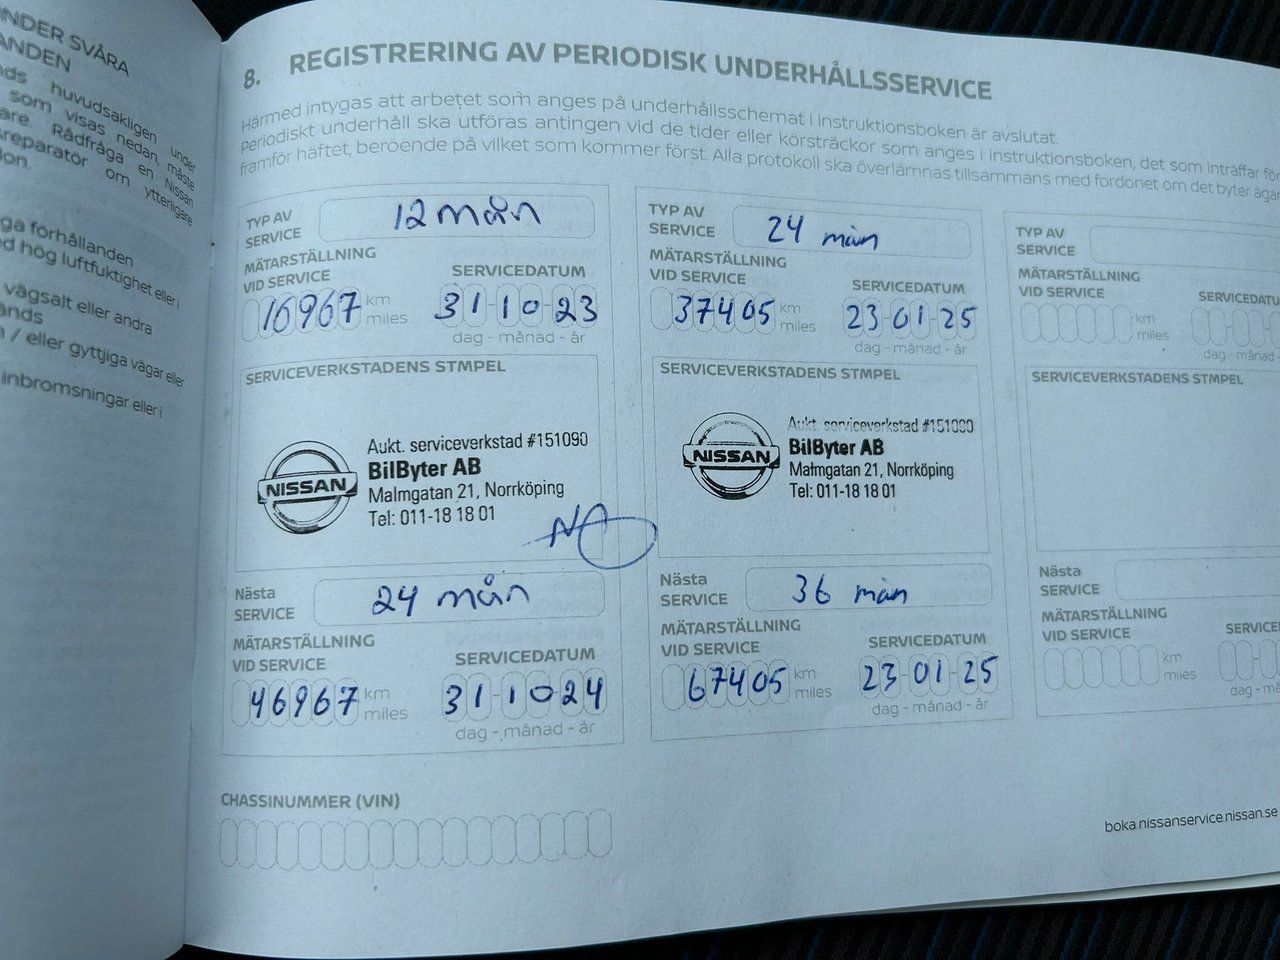 UNDER SVÅRA
ANDEN
huvudsakligen
som visas nedan, måste
under
Rådfråga en Nissan
reparatör om ytterligare
förhållanden
hög luftfuktighet eller i
vägsalt eller andra
/ eller gyttjiga vägar eller
inbromsningar eller i
8. REGISTRERING AV PERIODISK UNDERHÅLLSSERVICE
Härmed intygas att arbetet som anges på underhållsschemat i instruktionsboken är avslutat.
Periodiskt underhåll ska utföras antingen vid de tider eller körsträckor som anges i instruktionsboken, det som inträffar för
framför häftet, beroende på vilket som kommer först. Alla protokoll ska överlämnas tillsammans med fordonet om det byter ägar
TYP AV
SERVICE
12 mån
MÄTARSTÄLLNING
VID SERVICE
SERVICEDATUM
16967 km
miles
31-10-23
dag - månad - år
SERVICEVERKSTADENS STMPEL
NISSAN
Aukt. serviceverkstad #151090
BilByter AB
Malmgatan 21, Norrköping
Tel: 011-18 18 01
Nästa
SERVICE
24 mån
MÄTARSTÄLLNING
VID SERVICE
SERVICEDATUM
46967 km
miles
31-10-24
dag - månad - år
TYP AV
SERVICE
24 mån
MÄTARSTÄLLNING
VID SERVICE
SERVICEDATUM
37405 km
miles
23-01-25
dag - månad - år
SERVICEVERKSTADENS STMPEL
NISSAN
Aukt. serviceverkstad #151090
BilByter AB
Malmgatan 21, Norrköping
Tel: 011-18 18 01
Nästa
SERVICE
36 mån
MÄTARSTÄLLNING
VID SERVICE
SERVICEDATUM
67405 km
miles
23-01-25
dag - månad - år
TYP AV
SERVICE
MÄTARSTÄLLNING
VID SERVICE
SERVICEDATU
km
miles
dag - månad
SERVICEVERKSTADENS STMPEL
Nästa
SERVICE
MÄTARSTÄLLNING
VID SERVICE
SERVICE
km
miles
dag - må
CHASSINUMMER (VIN)
boka.nissanservice.nissan.se